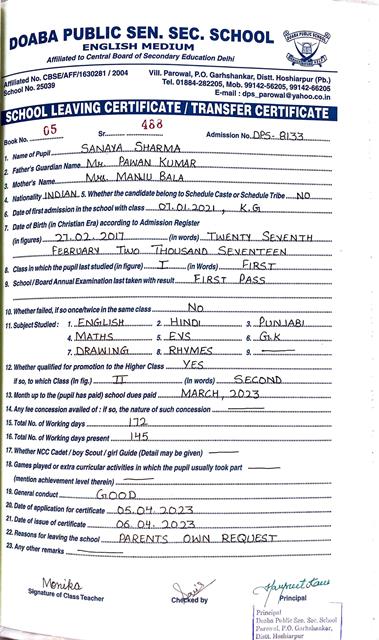 DOABA PUBLIC SEN. SEC. SCHOOL
ENGLISH MEDIUM
Affiliated to Central Board of Secondary Education Delhi
Affiliated No. CBSE/AFF/1630281 / 2004
School No. 25039
Vill. Parowal, P.O. Garhshankar, Distt. Hoshiarpur (Pb.)
Tel. 01884-282205, Mob. 99142-56205, 99142-66205
E-mail : dps_parowal@yahoo.co.in
SCHOOL LEAVING CERTIFICATE / TRANSFER CERTIFICATE
Book No. 05 Sr. 488 Admission No. DPS-8133
1. Name of Pupil SANAYA SHARMA
2. Father's Guardian Name Mr. PAWAN KUMAR
3. Mother's Name Mrs. MANJU BALA
4. Nationality INDIAN 5. Whether the candidate belong to Schedule Caste or Schedule Tribe NO
6. Date of first admission in the school with class 07.01.2021, K.G
7. Date of Birth (in Christian Era) according to Admission Register
(in figures) 27.02.2017 (in words) TWENTY SEVENTH
FEBRUARY TWO THOUSAND SEVENTEEN
8. Class in which the pupil last studied (in figure) I (in Words) FIRST
9. School / Board Annual Examination last taken with result FIRST PASS
10. Whether failed, if so once/twice in the same class No
11. Subject Studied : 1. ENGLISH 2. HINDI 3. PUNJABI
4. MATHS 5. EVS 6. G.K
7. DRAWING 8. RHYMES 9.
12. Whether qualified for promotion to the Higher Class YES
If so, to which Class (in fig.) II (In words) SECOND
13. Month up to the (pupil has paid) school dues paid MARCH, 2023
14. Any fee concession availed of : if so, the nature of such concession
15. Total No. of Working days 172
16. Total No. of Working days present 145
17. Whether NCC Cadet / boy Scout / girl Guide (Detail may be given)
18. Games played or extra curricular activities in which the pupil usually took part
(mention achievement level therein)
19. General conduct GOOD
20. Date of application for certificate 05.04.2023
21. Date of issue of certificate 06.04.2023
22. Reasons for leaving the school PARENTS OWN REQUEST
23. Any other remarks
Monika
Harpreet Kaur
Signature of Class Teacher Checked by Principal
Principal
Doaba Public Sen. Sec. School
Parowal, P.O. Garhshankar,
Distt. Hoshiarpur